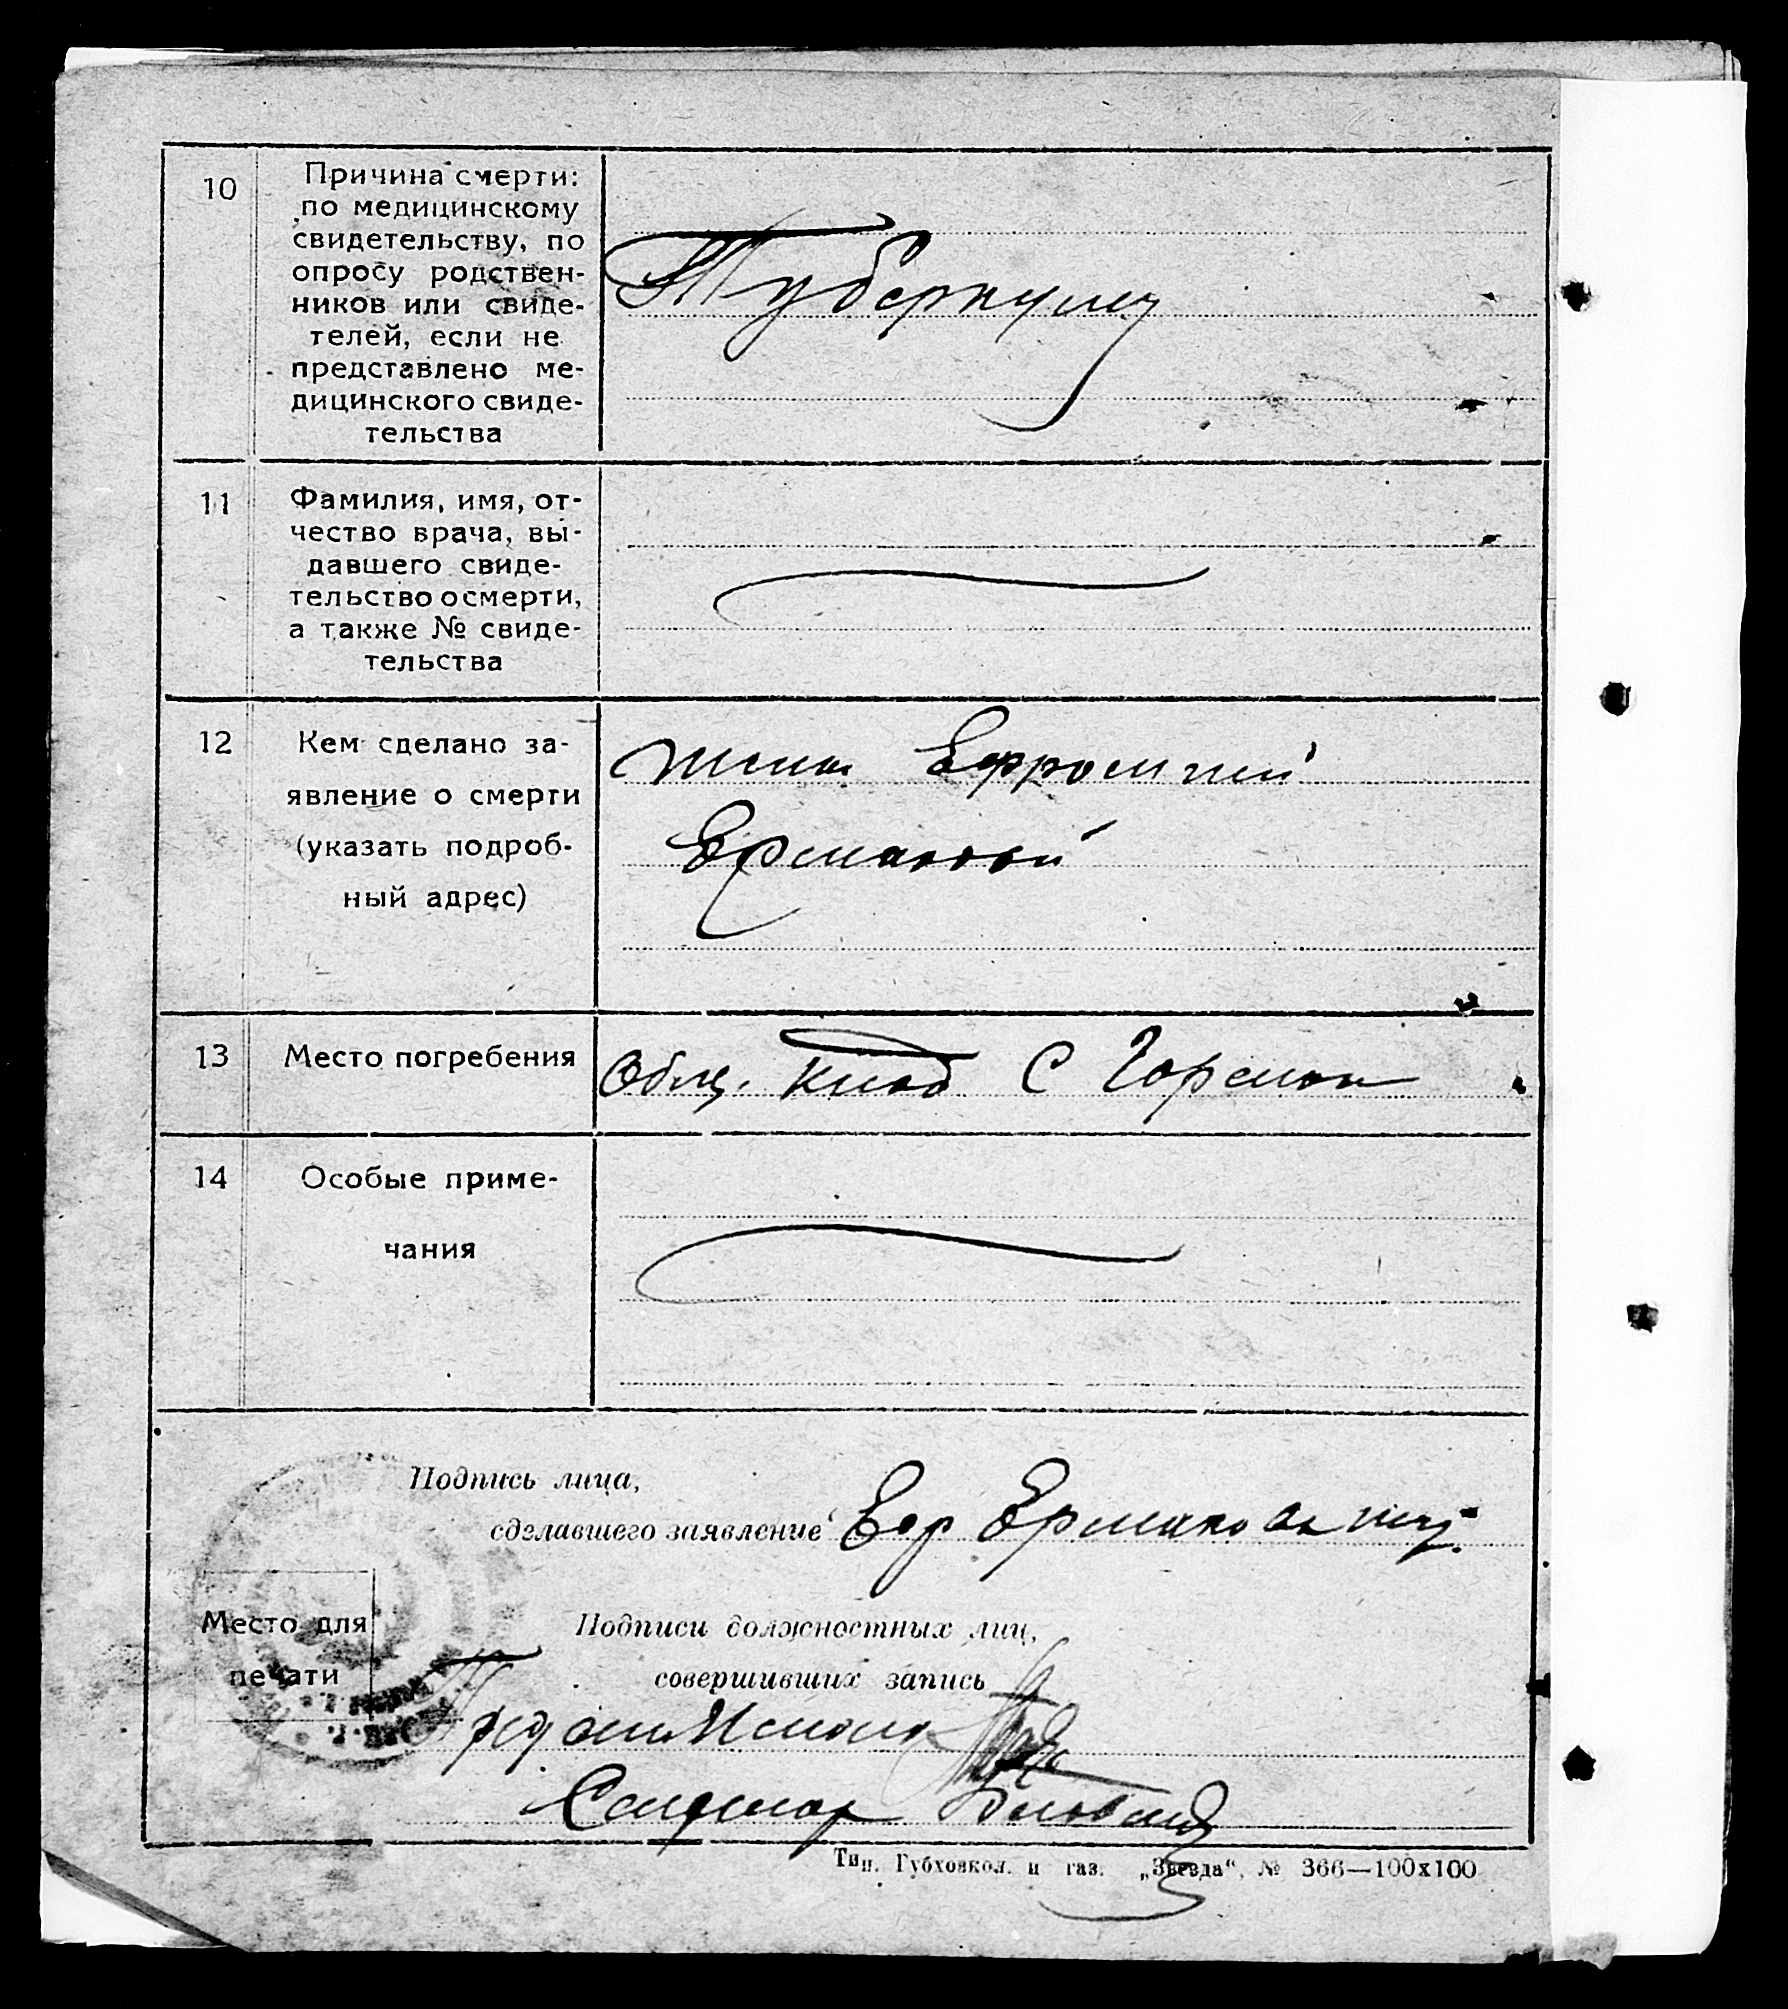 10
Причина смерти:
по медицинскому
свидетельству, по
опросу родствен-
ников или свиде-
телей, если не
представлено ме-
дицинского свиде-
тельства
Туберкулез
11
Фамилия, имя, от-
чество врача, вы-
давшего свиде-
тельство о смерти,
а также № свиде-
тельства
12
Кем сделано за-
явление о смерти
(указать подроб-
ный адрес)
Ефросиней
Ермаковой
13
Место погребения
Общ. клад с Горман
14
Особые приме-
чания
Подпись лица,
сделавшего заявление
Место для
печати
Подписи должностных лиц,
совершивших запись
Тип. Губховкол. и газ. „Звезда“, № 366—100х100